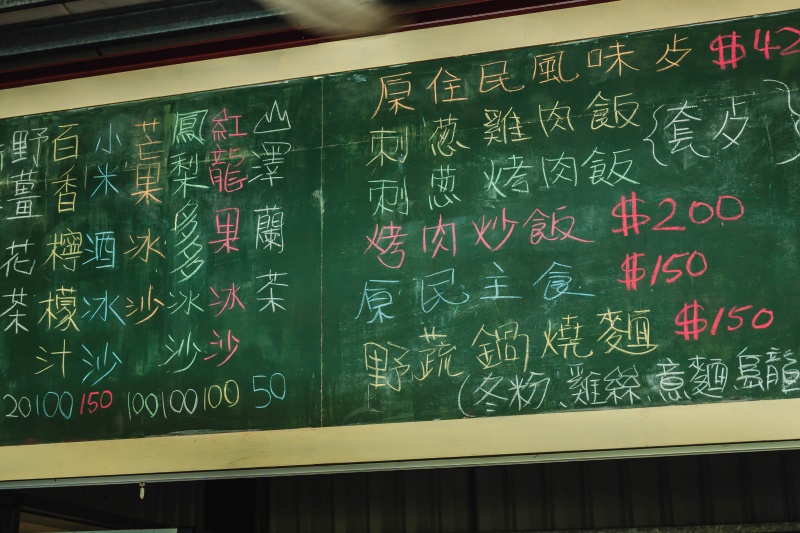 原住民風味歺 $42
刺蔥雞肉飯
刺蔥烤肉飯
{套歺}
烤肉炒飯 $200
原民主食 $150
野蔬鍋燒麵 $150
(冬粉、雞絲、意麵、烏龍
山澤蘭茶 50
紅龍果冰沙 100
鳳梨多多冰沙 100
芒果冰沙 100
小米酒冰沙 150
百香檸檬汁 100
野薑花茶 20